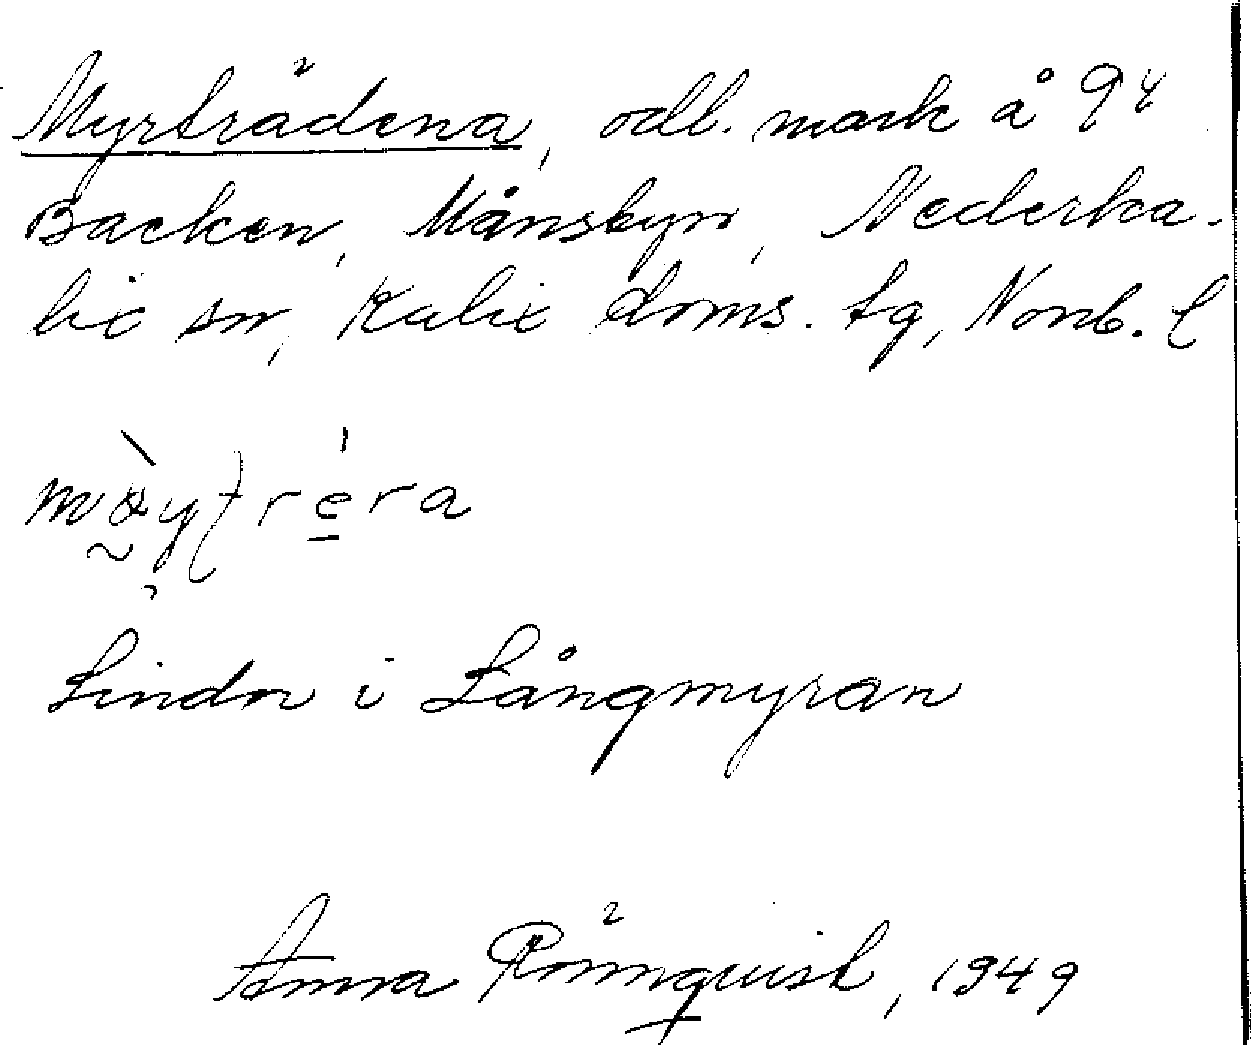 Myrträdena, odl. mark å 9⁴
Backen, Månsbyn, Nederka-
lix sn, Kalix doms. tg, Norrb. l
Lindor i Långmyran
Anna Rönnquist, 1949